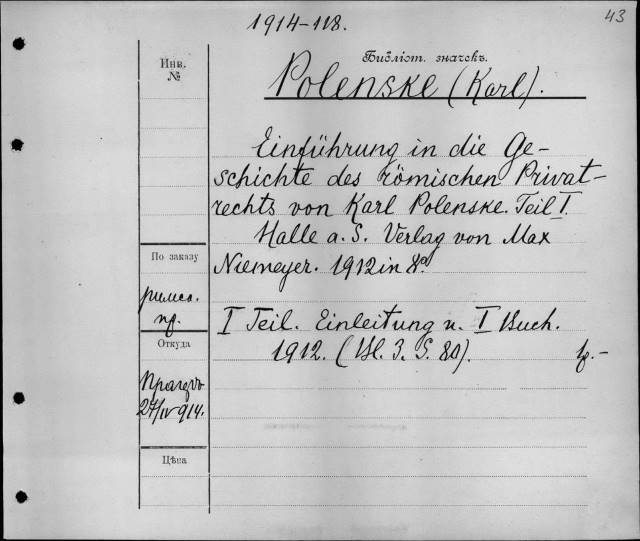 43
1914-118.
Библіот. значекъ.
Инв.
№
Polenske (Karl).
Einführung in die Ge-
schichte des römischen Privat-
rechts von Karl Polenske. Teil I.
Halle a. S. Verlag von Max
Niemeyer. 1912 in 8º
По заказу
римск.
пр.
I Teil. Einleitung u. I Buch.
1912. (Bl. 3. S. 80).
Откуда
27/IV 914.
Цѣна